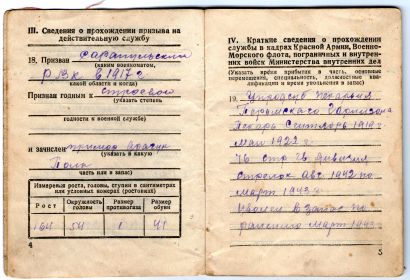 III. Сведения о прохождении призыва на
действительную службу
18. Призван Сарапульский
(каким военкоматом,
РВК в 1917 г
какой области и когда)
Призван годным к строевой
(указать степень
годности к военной службе)
и зачислен
(указать в какую
Полк
часть или в запас)
Измерения роста, головы, ступни в сантиметрах
или условных номерах (ростовках)
Рост Окружность головы Размер противогаза Размер обуви
164 54 1 41
4
IV. Краткие сведения о прохождении
службы в кадрах Красной Армии, Военно-
Морского флота, пограничных и внутрен-
них войск Министерства внутренних дел
(Указать время прибытия в часть, основные
перемещения, специальность, должностные ква-
лификации и время увольнения в запас)
19.
гарнизона
Пекарь Сентябрь 1919 г
Май 1922 г
76 стр. г. дивизия
стрелок авг 1942 по
март 1943 г
уволен в запас по
ранению март 1943 г
5